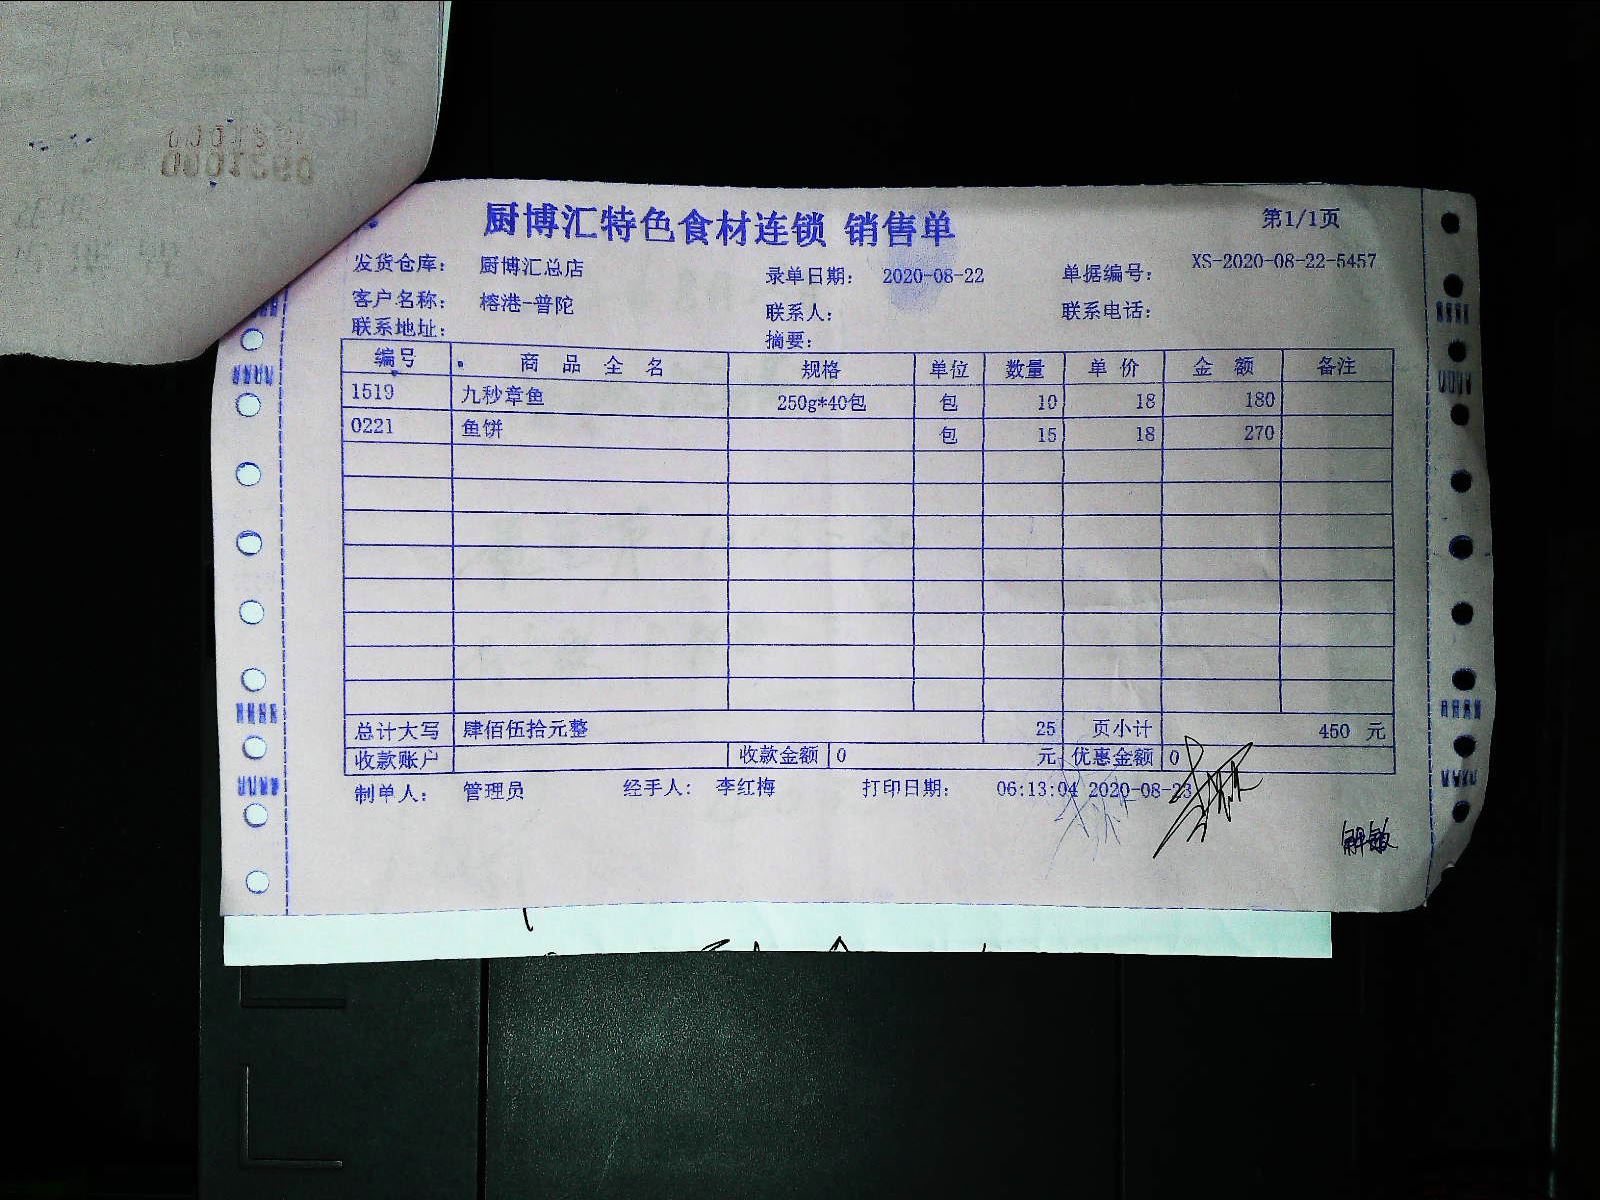 厨博汇特色食材连锁 销售单 第1/1页
发货仓库: 厨博汇总店 录单日期: 2020-08-22 单据编号: XS-2020-08-22-5457
客户名称: 榕港-普陀 联系人: 联系电话:
联系地址: 摘要:
编号 商品全名 规格 单位 数量 单价 金额 备注
1519 九秒章鱼 250g*40包 包 10 18 180
0221 鱼饼 包 15 18 270
总计大写 肆佰伍拾元整 25 页小计 450 元
收款账户 收款金额 0 元 优惠金额 0
制单人: 管理员 经手人: 李红梅 打印日期: 06:13:04 2020-08-23
解敏